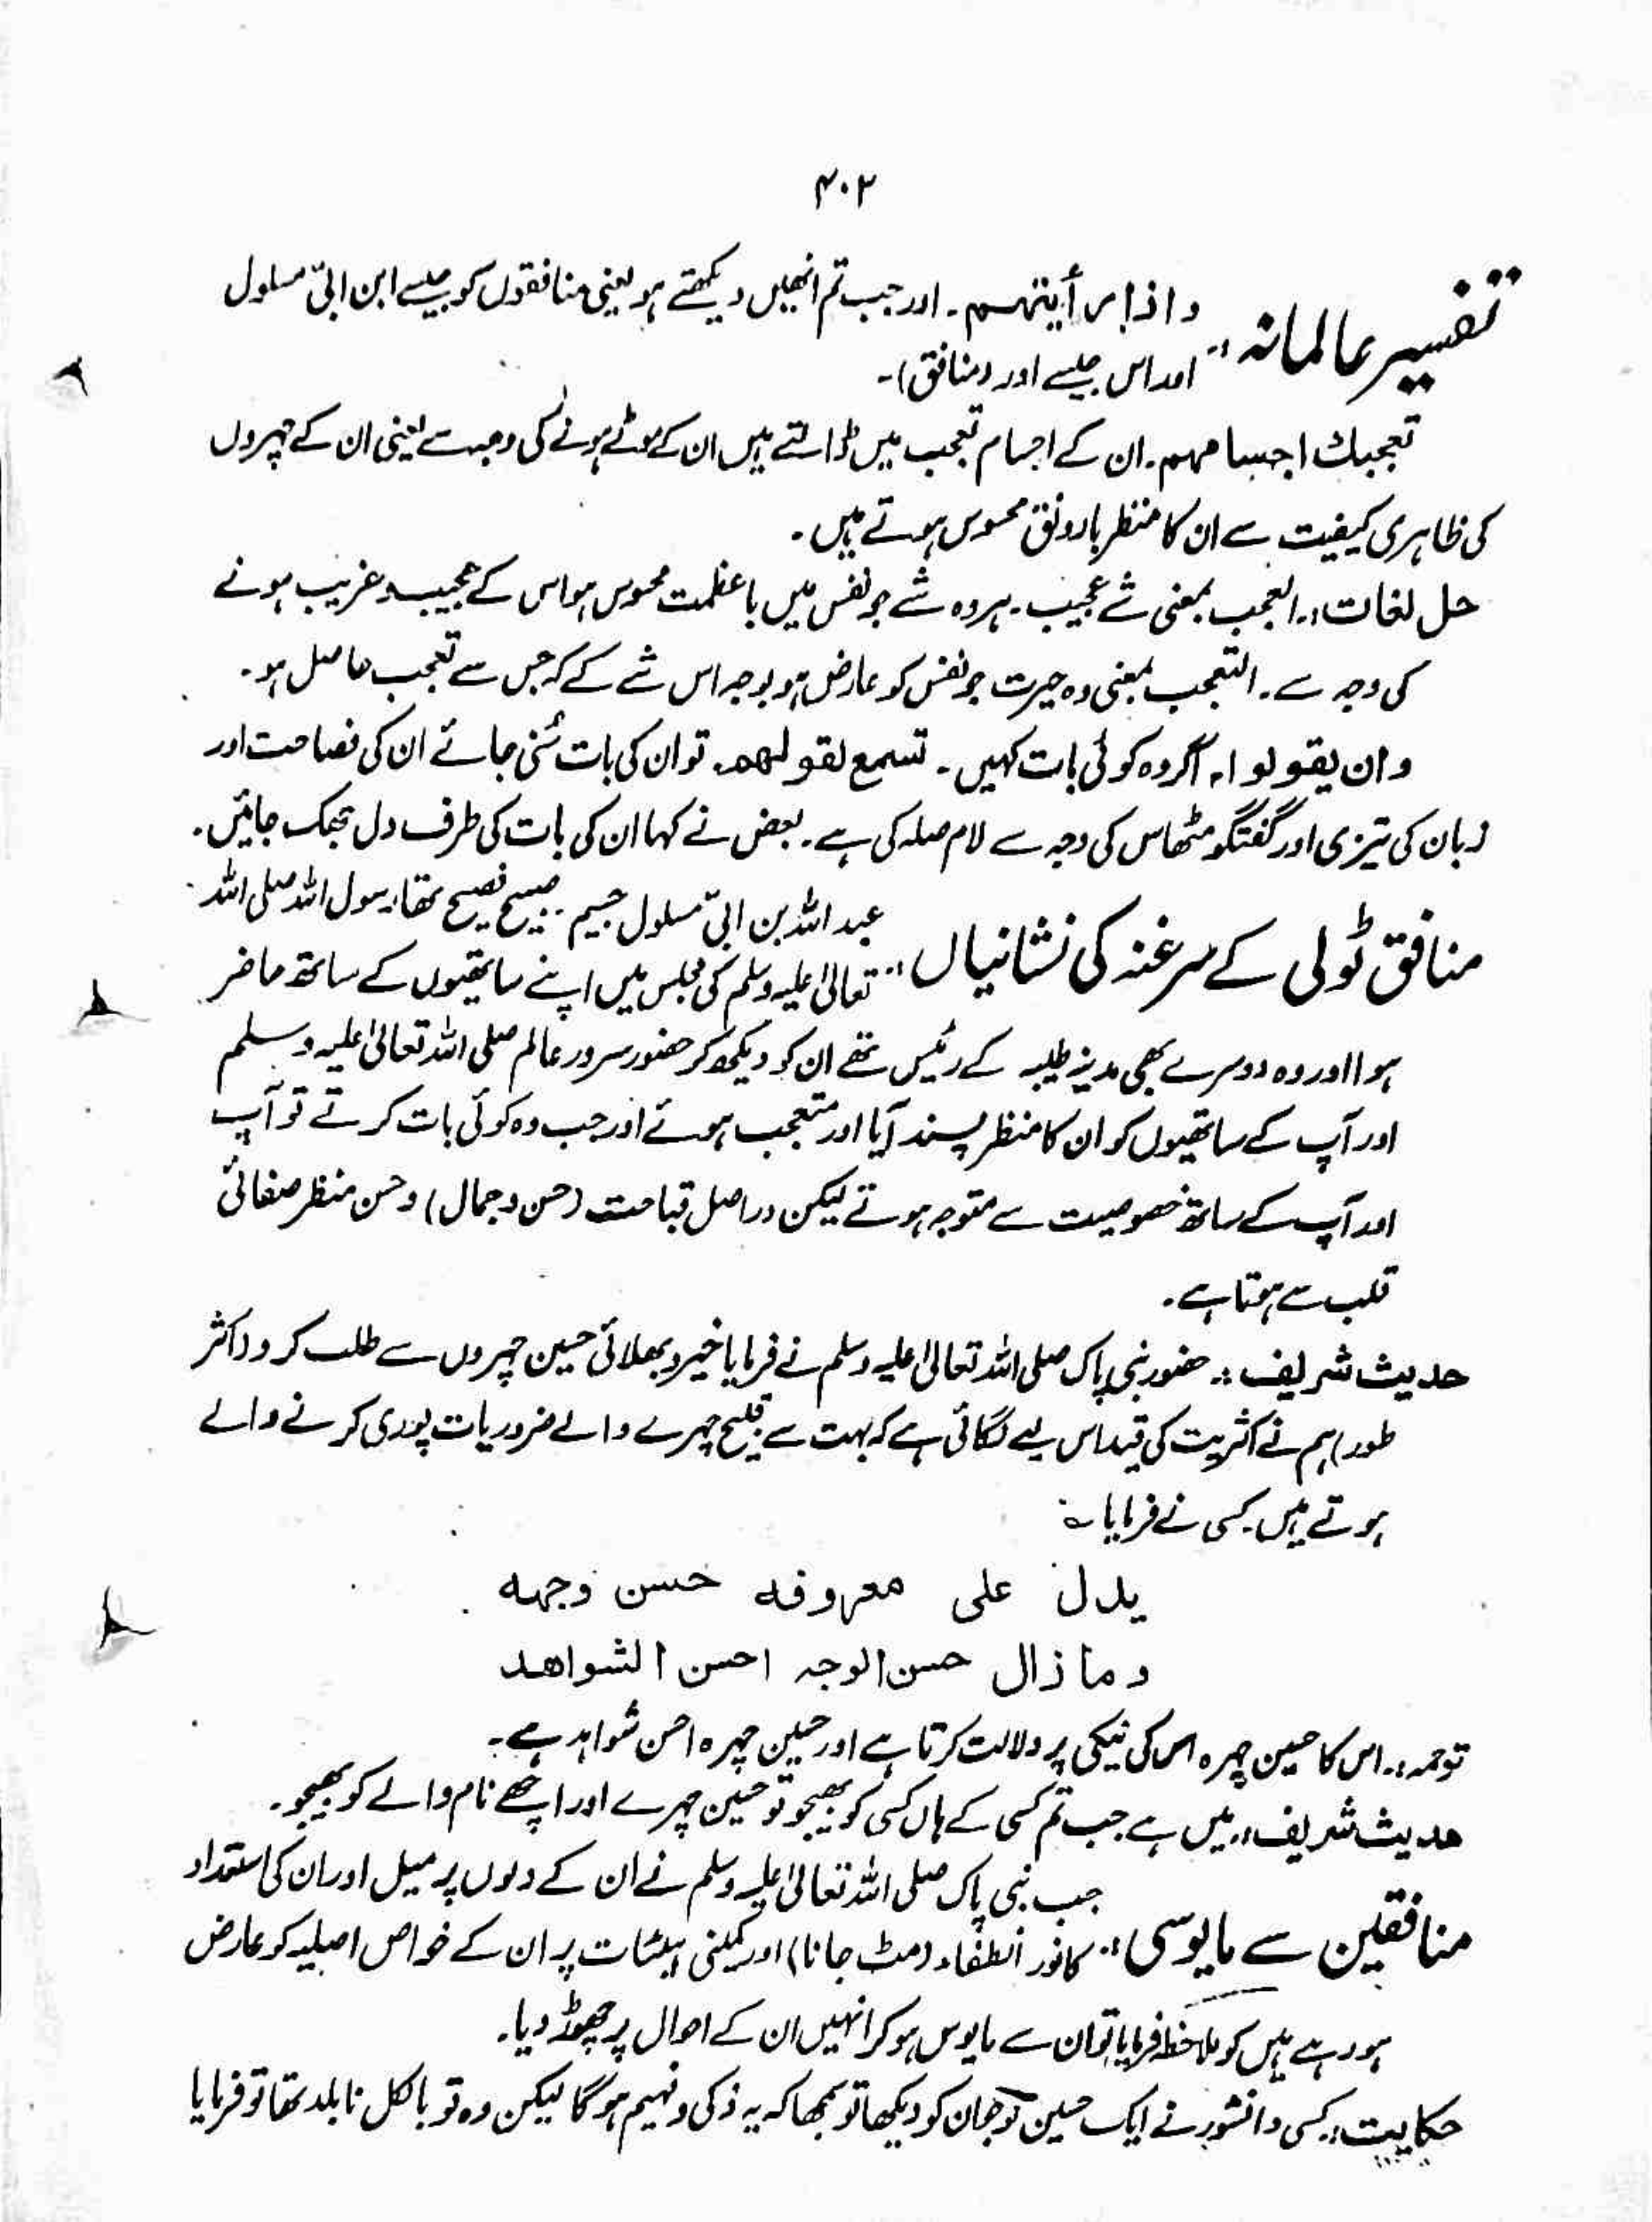 ۴۰۲
تفسیر عالمانہ :- واذا رأيتهم ۔ اور جب تم انھیں دیکھتے ہو یعنی منافقوں کو جیسے ابن ابیّ سلول
اور اس جیسے اور (منافق)۔
تعجبك اجسامهم ۔ ان کے اجسام تعجب میں ڈالتے ہیں ان کے موٹے ہونے کی وجہ سے یعنی ان کے چہروں
کی ظاہری کیفیت سے ان کا منظر بارونق محسوس ہوتے ہیں ۔
حل لغات :۔ العجب بمعنی شے عجیب ۔ ہر وہ شے جو نفس میں باعظمت محسوس ہو اس کے عجیب و غریب ہونے
کی وجہ سے ۔ التعجب بمعنی وہ حیرت جو نفس کو عارض ہو بوجہ اس شے کے کہ جس سے تعجب حاصل ہو ۔
وان يقولوا ۔ اگر وہ کوئی بات کہیں ۔ تسمع لقولهم ۔ تو ان کی بات سُنی جائے ان کی فصاحت اور
زبان کی تیزی اور گفتگو مٹھاس کی وجہ سے لام صلہ کی ہے ۔ بعض نے کہا ان کی بات کی طرف دل جھک جائیں ۔
منافق ٹولی کے سرغنہ کی نشانیاں :- عبداللہ بن ابیّ سلول جسیم صبیح فصیح تھا رسول اللہ صلی اللہ
تعالیٰ علیہ وسلم کی مجلس میں اپنے ساتھیوں کے ساتھ حاضر
ہوا اور وہ دوسرے بھی مدینہ طیبہ کے رئیس تھے ان کو دیکھ کر حضور سرور عالم صلی اللہ تعالیٰ علیہ وسلم
اور آپ کے ساتھیوں کو ان کا منظر پسند آیا اور متعجب ہوئے اور جب وہ کوئی بات کرتے تو آپ
اور آپ کے ساتھ خصوصیت سے متوجہ ہوتے لیکن دراصل قباحت (حسن و جمال) و حسن منظر صفائی
قلب سے ہوتا ہے ۔
حدیث شریف :۔ حضور نبی پاک صلی اللہ تعالیٰ علیہ وسلم نے فرمایا خیر و بھلائی حسین چہروں سے طلب کرو (اکثر
طور) ہم نے اکثریت کی قید اس لیے لگائی ہے کہ بہت سے قبیح چہرے والے ضروریات پوری کرنے والے
ہوتے ہیں کسی نے فرمایا ؎
يدل على معروفه حسن وجهه
وما زال حسن الوجه احسن الشواهد
توجمہ :۔ اس کا حسین چہرہ اس کی نیکی پر دلالت کرتا ہے اور حسین چہرہ احسن شواہد ہے ۔
حدیث شریف :۔ میں ہے جب تم کسی کے ہاں کسی کو بھیجو تو حسین چہرے اور اچھے نام والے کو بھیجو ۔
منافقین سے مایوسی :- جب نبی پاک صلی اللہ تعالیٰ علیہ وسلم نے ان کے دلوں پر میل اور ان کی استعداد
کا نور انطفاء (مٹ جانا) اور کمینی ہیئات پر ان کے خواص اصلیہ کو عارض
ہو رہے ہیں کو ملاحظہ فرمایا تو ان سے مایوس ہو کر انہیں ان کے احوال پر چھوڑ دیا ۔
حکایت :۔ کسی دانشور نے ایک حسین نوجوان کو دیکھا تو سمجھا کہ یہ ذکی و فہیم ہوگا لیکن وہ تو بالکل نابلد تھا تو فرمایا